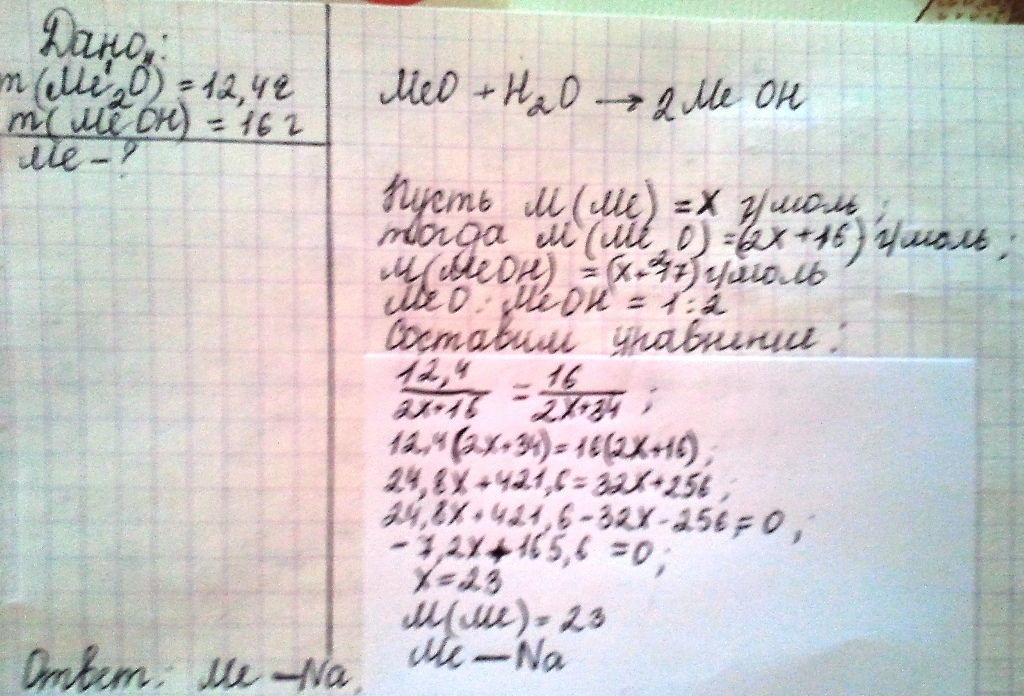 Дано:
m(Me₂O) = 12,4г
m(MeOH) = 16 г
Me - ?
MeO + H₂O → 2MeOH
Пусть M(Me) = x г/моль;
тогда M(Me₂O) = (2x+16) г/моль;
M(MeOH) = (x+17) г/моль
MeO : MeOH = 1:2
Составим уравнение:
12,4/2x+16 = 16/2x+34 ;
12,4(2x+34)=16(2x+16);
24,8x+421,6=32x+256;
24,8x+421,6-32x-256=0;
-7,2x+165,6=0;
x=23
M(Me)=23
Me — Na
Ответ: Me — Na.